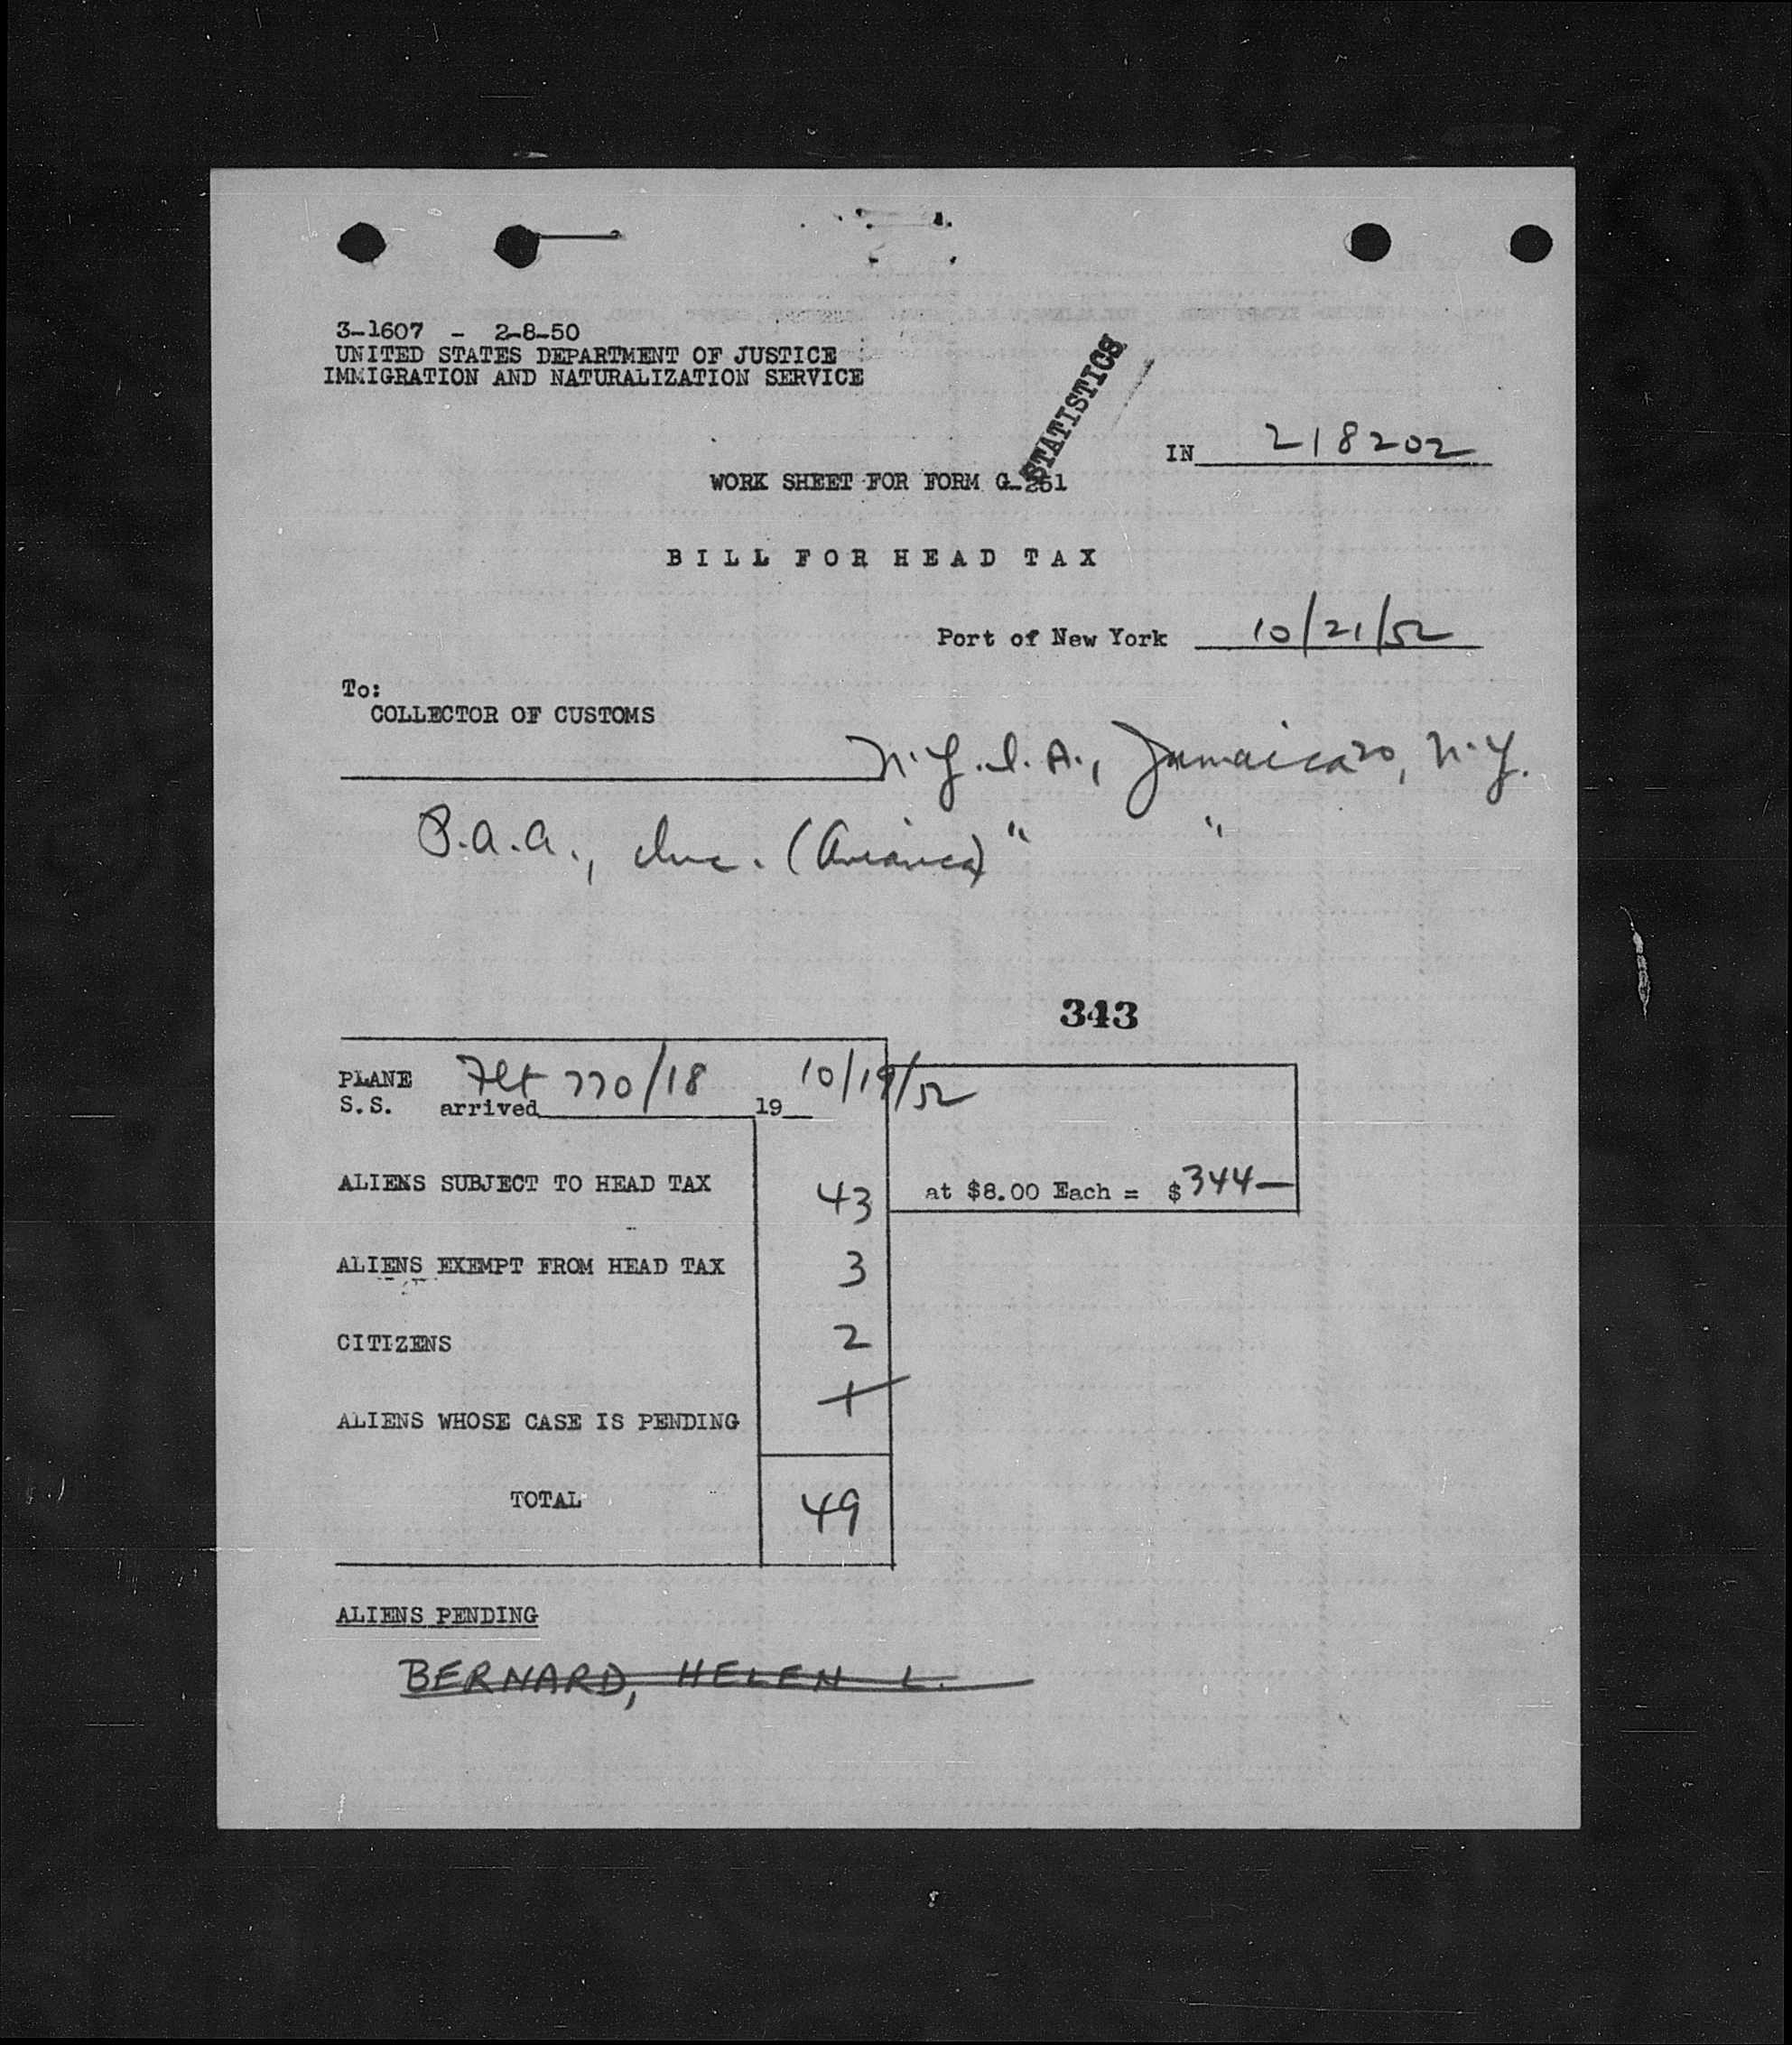 3-1607 - 2-8-50
UNITED STATES DEPARTMENT OF JUSTICE
IMMIGRATION AND NATURALIZATION SERVICE
STATISTICS
IN 218202
WORK SHEET FOR FORM G-251
BILL FOR HEAD TAX
Port of New York 10/21/52
To:
COLLECTOR OF CUSTOMS
N.Y.I.A., Jamaica 30, N.Y.
P.A.A., Inc. (Avianca) " "
343
PLANE Flt 770/18 10/19/52
S.S. arrived 19
ALIENS SUBJECT TO HEAD TAX 43 at $8.00 Each = $344—
ALIENS EXEMPT FROM HEAD TAX 3
CITIZENS 2
ALIENS WHOSE CASE IS PENDING 1
TOTAL 49
ALIENS PENDING
BERNARD, HELEN L.